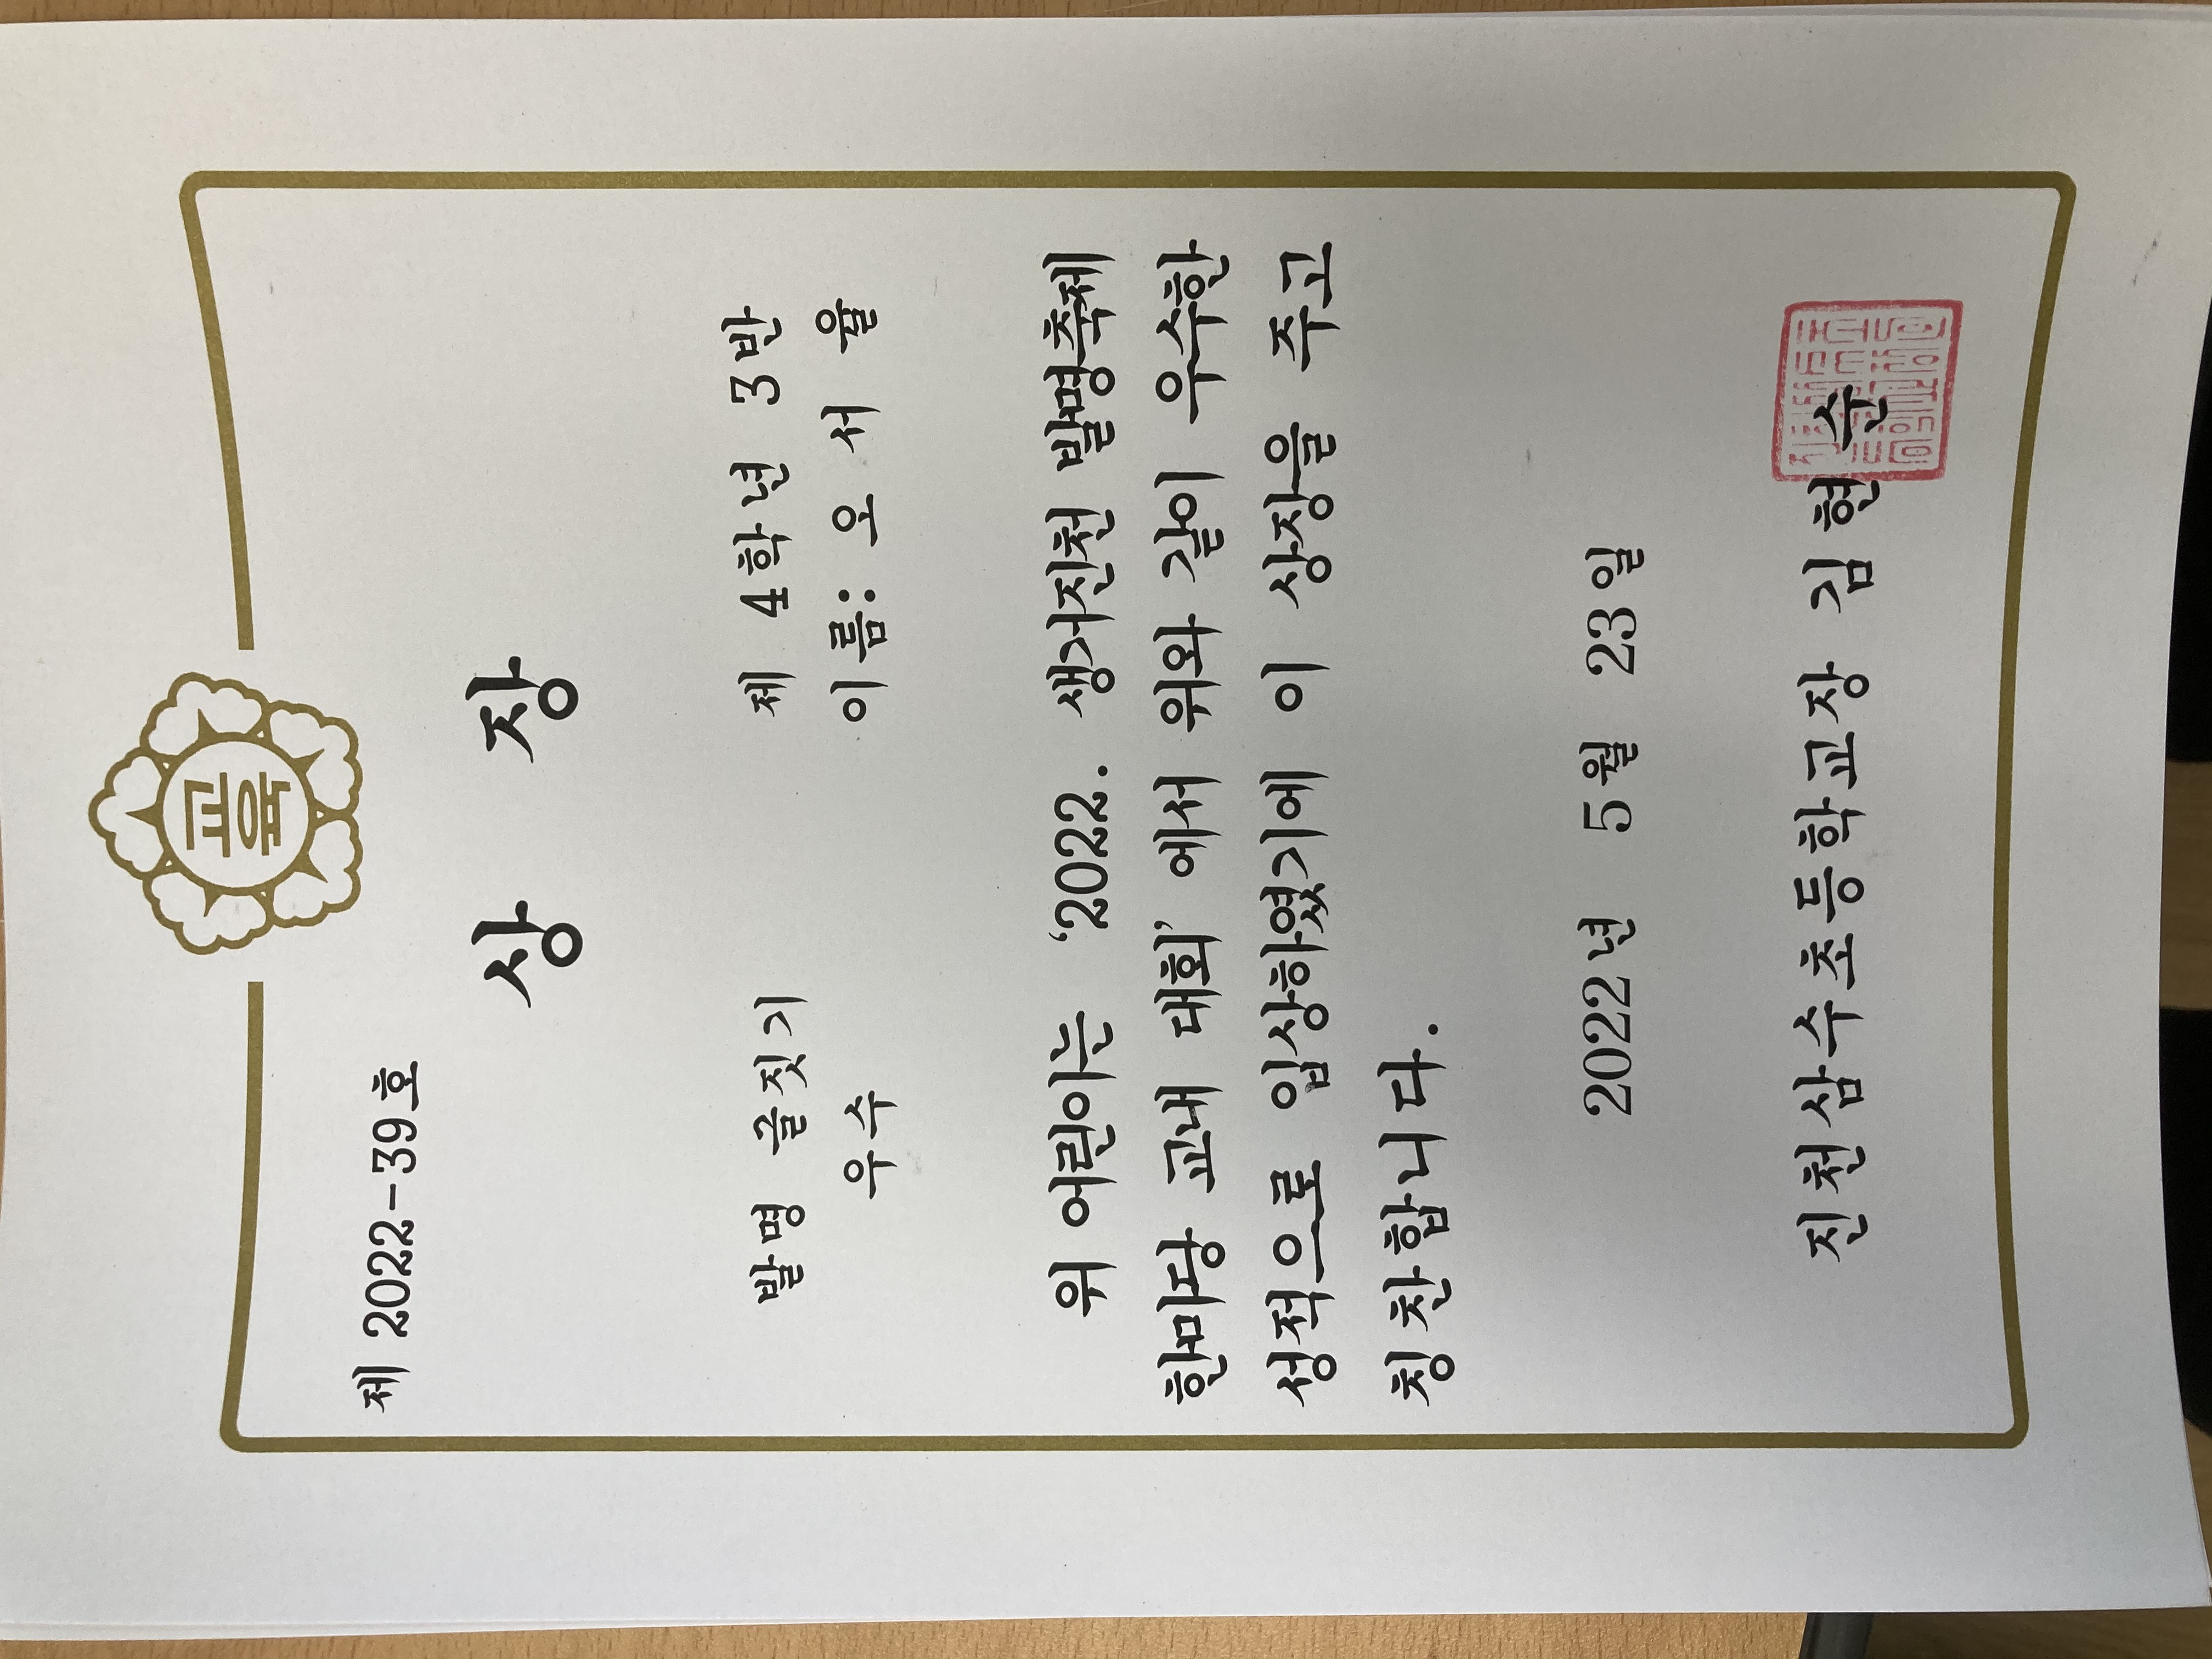 교육
제 2022-39호
상 장
발명 글짓기
우수
제 4학년 3반
이름: 오 서 율
위 어린이는 ‘2022. 생거진천 발명축제
한마당 교내 대회’ 에서 위와 같이 우수한
성적으로 입상하였기에 이 상장을 주고
칭찬합니다.
2022년 5월 23일
진천삼수초등학교장 김 현 순